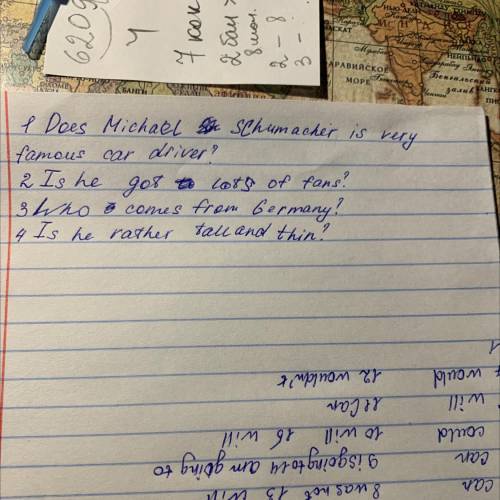 6209
4
7 кон
2 бан
8 шол.
2 - 8
3 -
АРАВИЙСКОЕ
МОРЕ
Бенгальский
залив
1 Does Michael Schumacher is very
famous car driver?
2 Is he got lots of fans?
3 Who comes from Germany?
4 Is he rather tall and thin?
can 8 was not 13 will
can 9 is going to 14 am going to
could 10 will 16 will
will 11 can
would 12 wouldn't
1